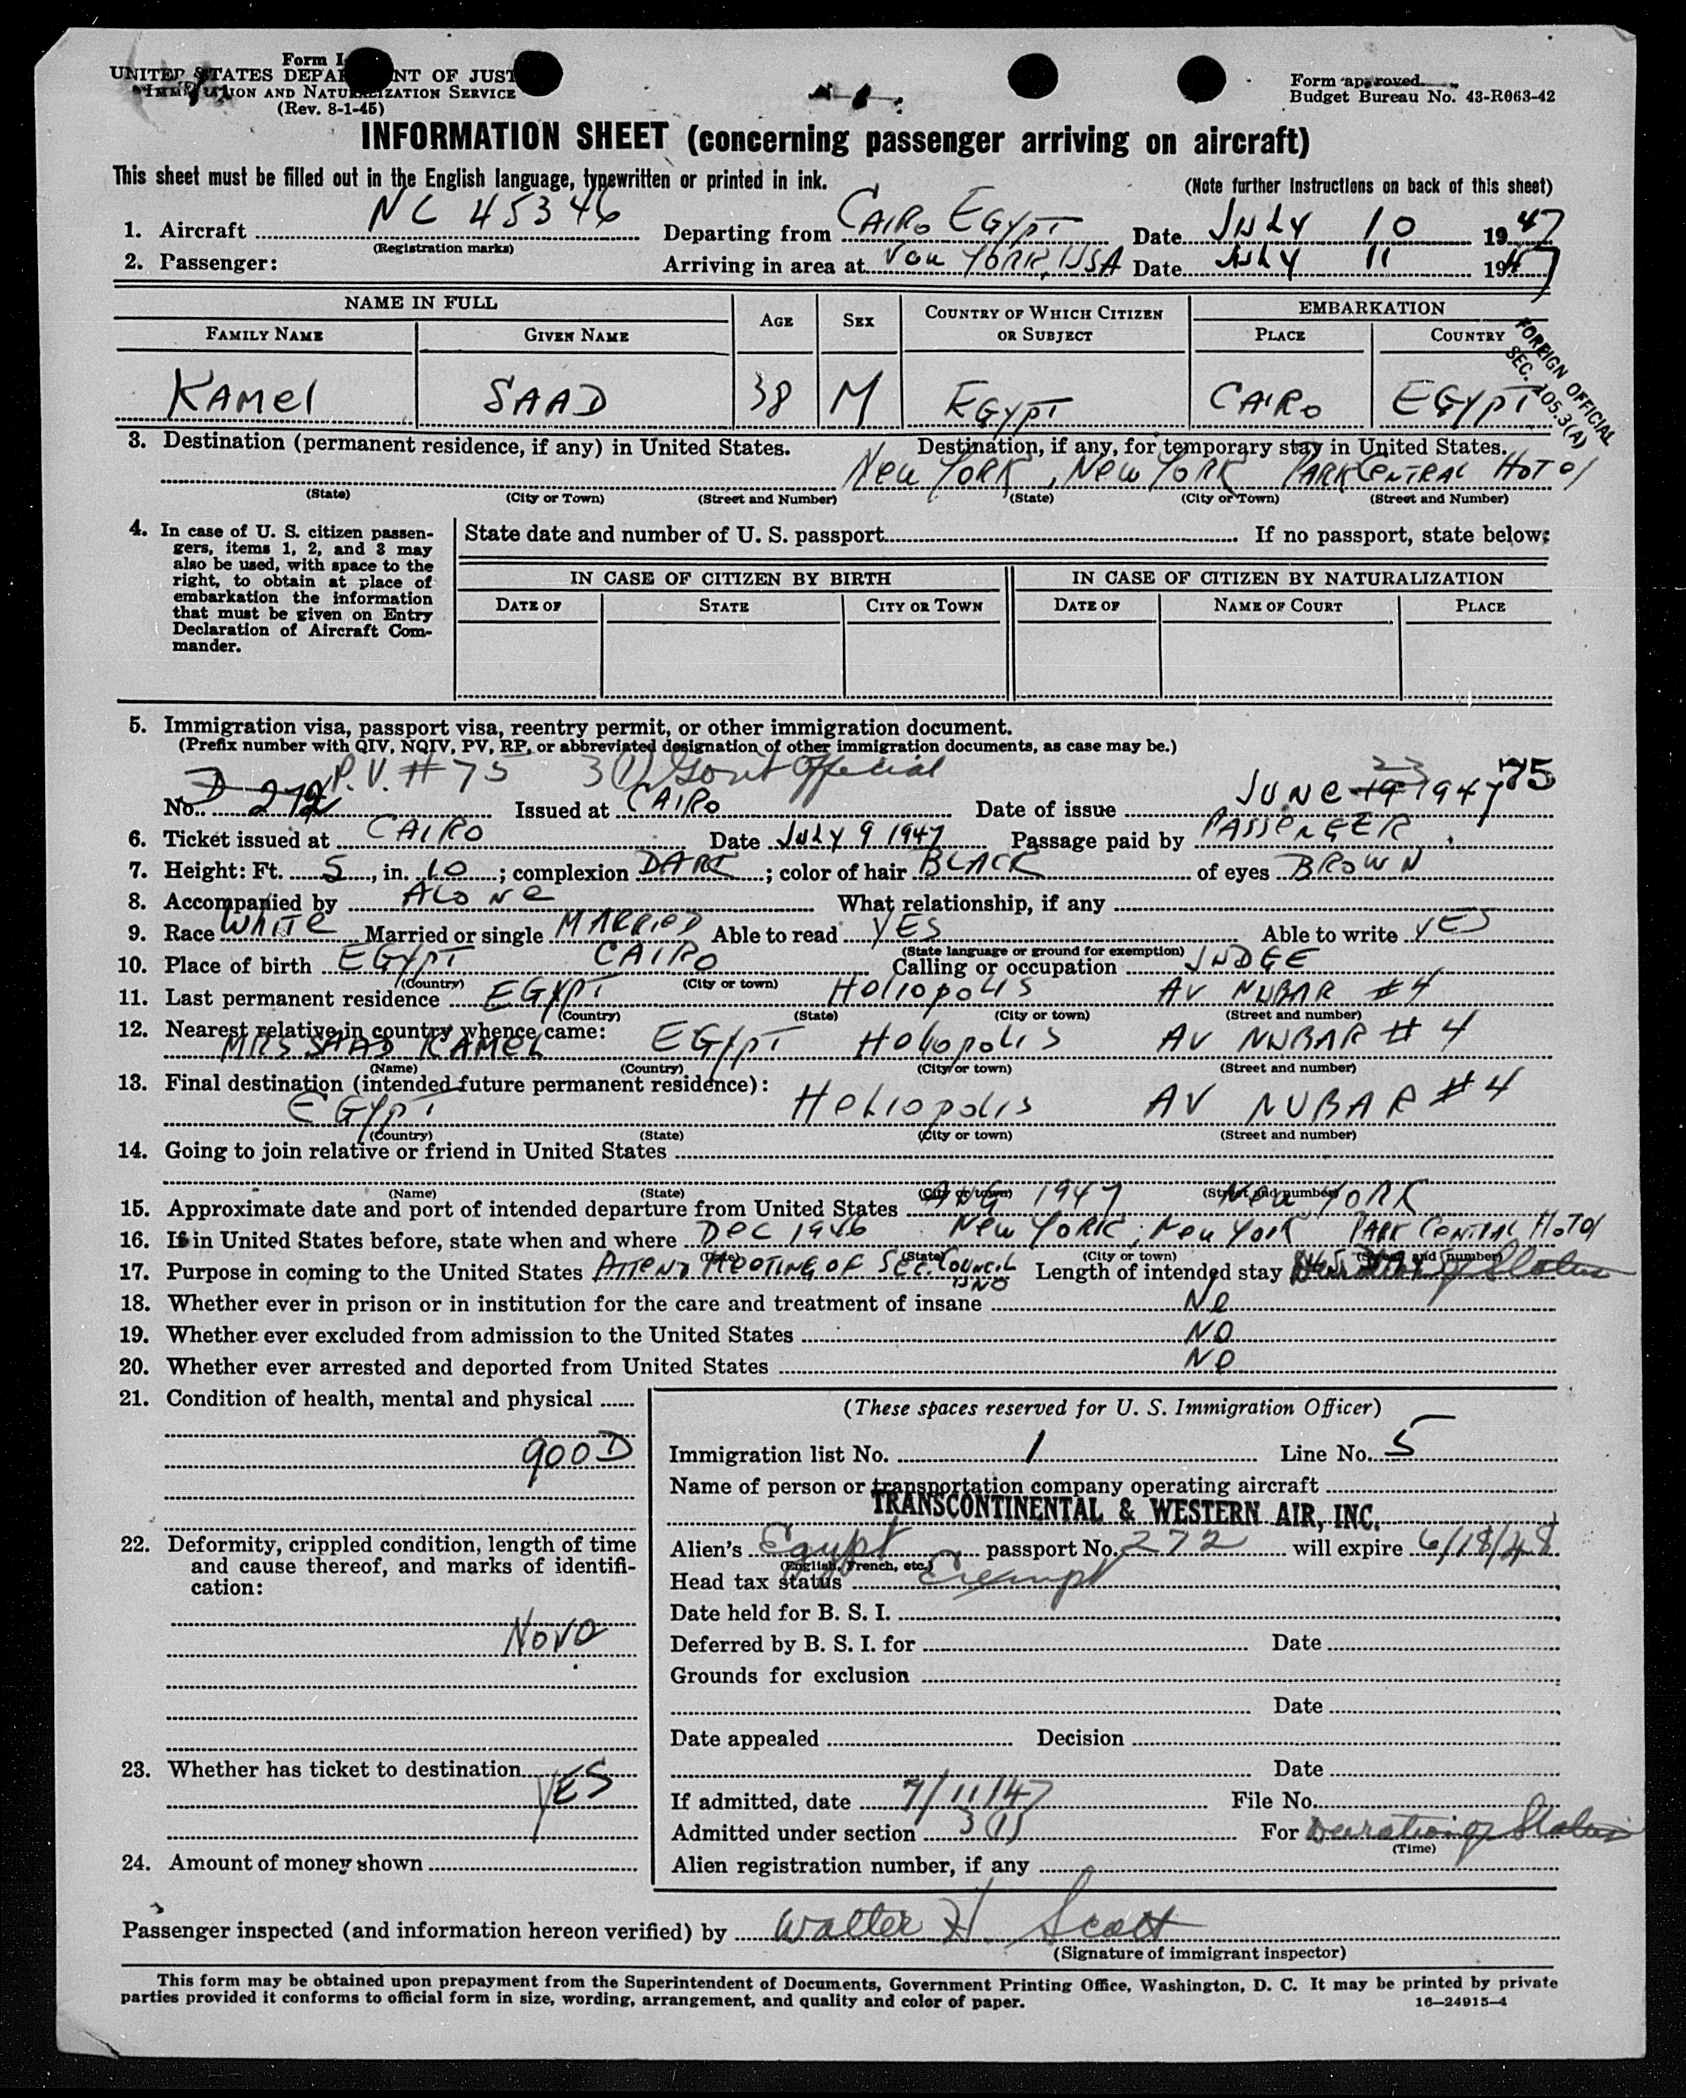 Form I
UNITED STATES DEPARTMENT OF JUSTICE
IMMIGRATION AND NATURALIZATION SERVICE
(Rev. 8-1-45)
Form approved.
Budget Bureau No. 43-R063-42
INFORMATION SHEET (concerning passenger arriving on aircraft)
This sheet must be filled out in the English language, typewritten or printed in ink.
(Note further instructions on back of this sheet)
1. Aircraft NC 45346 Departing from CAIRO EGYPT Date JULY 10 1947
(Registration marks)
2. Passenger: Arriving in area at YORK, USA Date JULY 11 1947
NAME IN FULL AGE SEX COUNTRY OF WHICH CITIZEN OR SUBJECT EMBARKATION
FAMILY NAME GIVEN NAME PLACE COUNTRY
FOREIGN OFFICIAL
SEC. 105.3(A)
KAMEl SAAD 38 M EGYPT CAIRO EGYPT
3. Destination (permanent residence, if any) in United States. Destination, if any, for temporary stay in United States.
New YORK, New YORK PARK CENTRAL HOTOl
(State) (City or Town) (Street and Number) (State) (City or Town) (Street and Number)
4. In case of U. S. citizen passen-
gers, items 1, 2, and 3 may
also be used, with space to the
right, to obtain at place of
embarkation the information
that must be given on Entry
Declaration of Aircraft Com-
mander.
State date and number of U. S. passport If no passport, state below:
IN CASE OF CITIZEN BY BIRTH IN CASE OF CITIZEN BY NATURALIZATION
DATE OF STATE CITY OR TOWN DATE OF NAME OF COURT PLACE
5. Immigration visa, passport visa, reentry permit, or other immigration document.
(Prefix number with QIV, NQIV, PV, RP, or abbreviated designation of other immigration documents, as case may be.)
P.V. #75 3(1) Govt Official 23 75
No. D 272 Issued at CAIRO Date of issue JUNE 19 1947
6. Ticket issued at CAIRO Date JULY 9 1947 Passage paid by PASSENGER
7. Height: Ft. 5, in. 10; complexion DARK; color of hair BLACK of eyes BROWN
8. Accompanied by ALONE What relationship, if any
9. Race WHITE Married or single MARRIED Able to read YES Able to write YES
(State language or ground for exemption)
10. Place of birth EGYPT CAIRO Calling or occupation JUDGE
(Country) (City or town)
11. Last permanent residence EGYPT HELIOPOLIS AV NUBAR #4
(Country) (State) (City or town) (Street and number)
12. Nearest relative in country whence came:
MRS SAAD KAMEL EGYPT HELIOPOLIS AV NUBAR #4
(Name) (Country) (City or town) (Street and number)
13. Final destination (intended future permanent residence):
EGYPT HELIOPOLIS AV NUBAR #4
(Country) (State) (City or town) (Street and number)
14. Going to join relative or friend in United States
(Name) (State) (City or town) (Street and number)
15. Approximate date and port of intended departure from United States AUG 1947 New YORK
16. If in United States before, state when and where DEC 1946 New YORK, New York PARK CENTRAL HOTOl
(Date) (State) (City or town) (Street and number)
17. Purpose in coming to the United States ATTEND MEETING OF SEC. COUNCIL UNO Length of intended stay Duration of Status
18. Whether ever in prison or in institution for the care and treatment of insane NO
19. Whether ever excluded from admission to the United States NO
20. Whether ever arrested and deported from United States NO
21. Condition of health, mental and physical
GOOD
22. Deformity, crippled condition, length of time
and cause thereof, and marks of identifi-
cation:
23. Whether has ticket to destination
YES
24. Amount of money shown
(These spaces reserved for U. S. Immigration Officer)
Immigration list No. 1 Line No. 5
Name of person or transportation company operating aircraft
TRANSCONTINENTAL & WESTERN AIR, INC.
Alien's Egypt passport No. 272 will expire 6/18/48
(English, French, etc.)
Head tax status Exempt
Date held for B. S. I.
Deferred by B. S. I. for Date
Grounds for exclusion
Date
Date appealed Decision
Date
If admitted, date 7/11/47 File No.
Admitted under section 3(1) For Duration of Status
(Time)
Alien registration number, if any
Passenger inspected (and information hereon verified) by Walter H. Scott
(Signature of immigrant inspector)
This form may be obtained upon prepayment from the Superintendent of Documents, Government Printing Office, Washington, D. C. It may be printed by private
parties provided it conforms to official form in size, wording, arrangement, and quality and color of paper.
16—24915-4